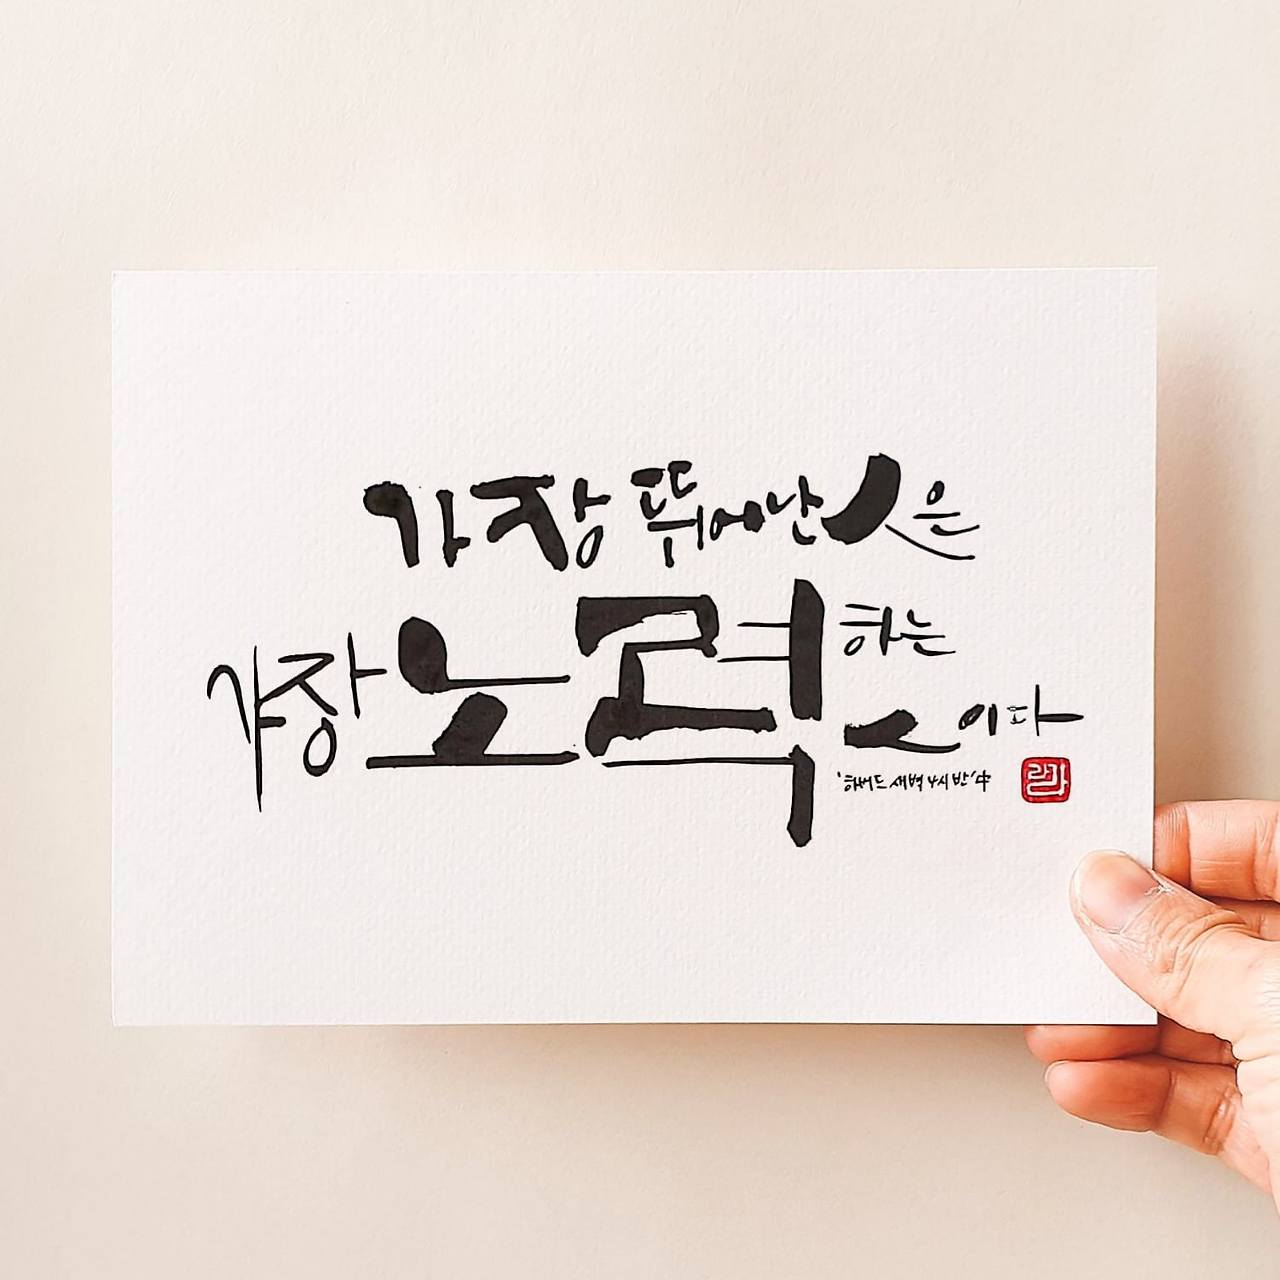 가장 뛰어난 人은
가장 노력하는
人이다
'하버드 새벽 4시 반' 中